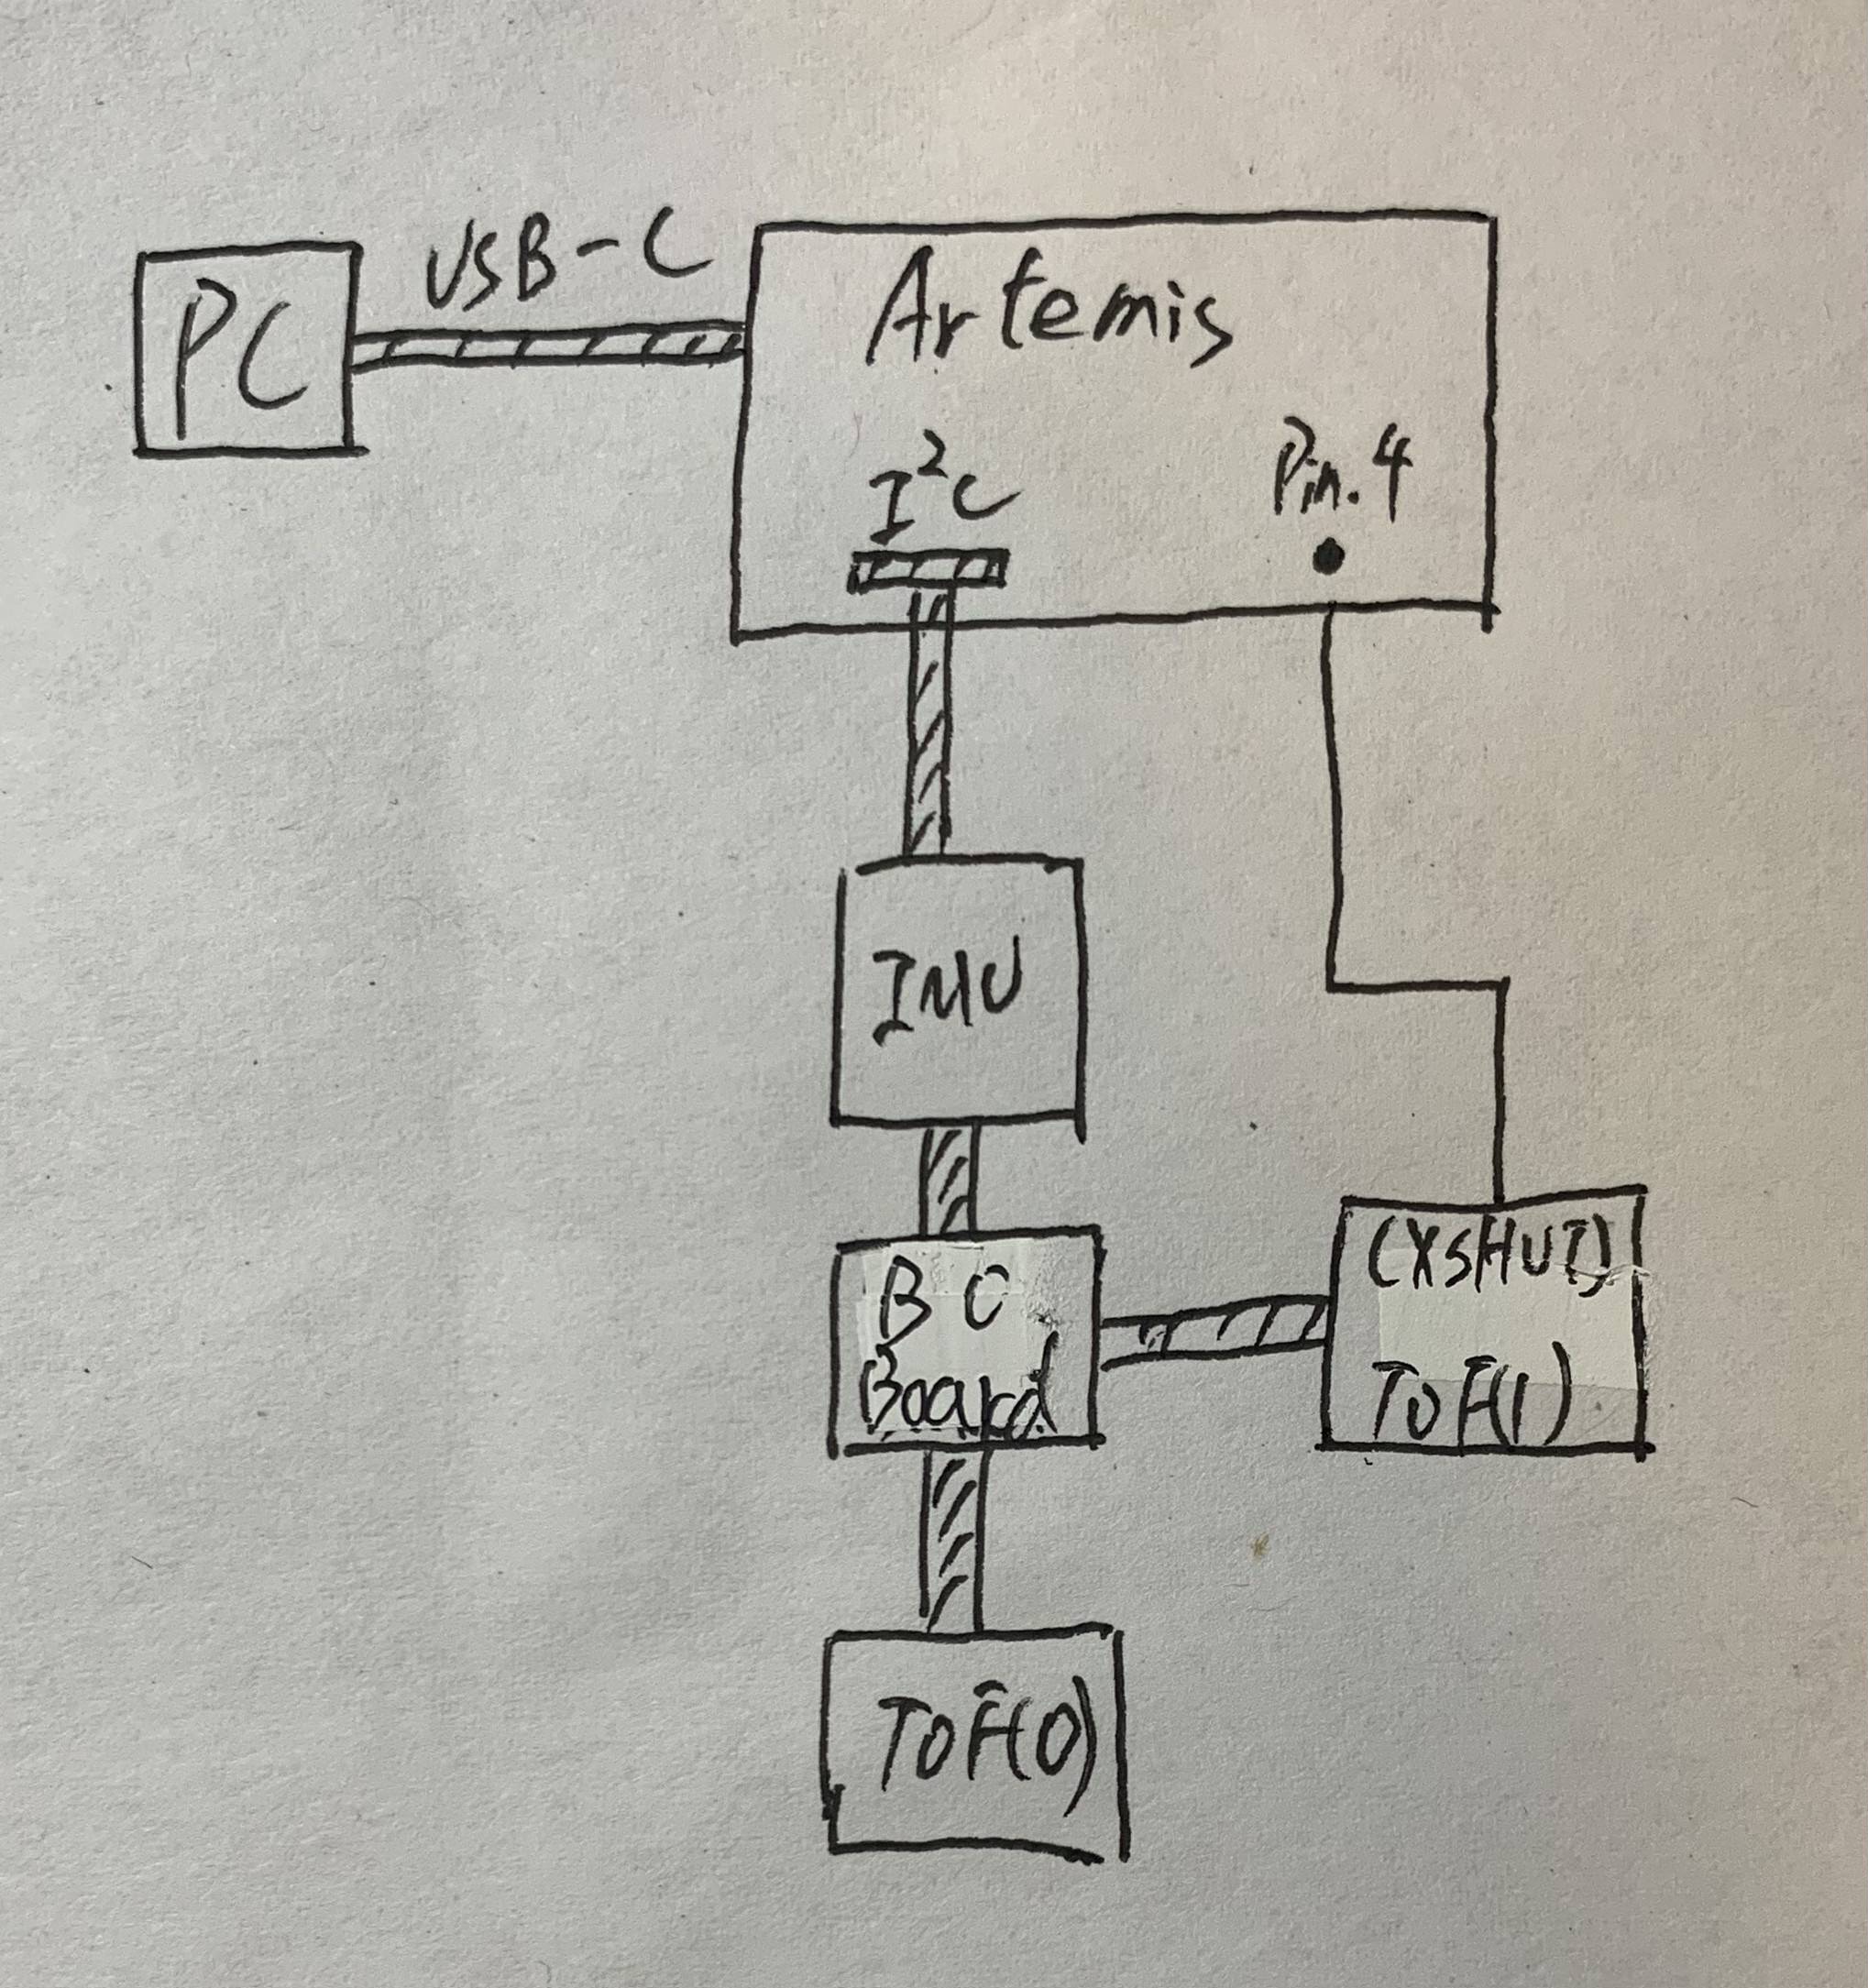 PC
USB-C
Artemis
I²C
Pin.4
IMU
BO
Board
(XSHUT)
ToF(1)
ToF(0)